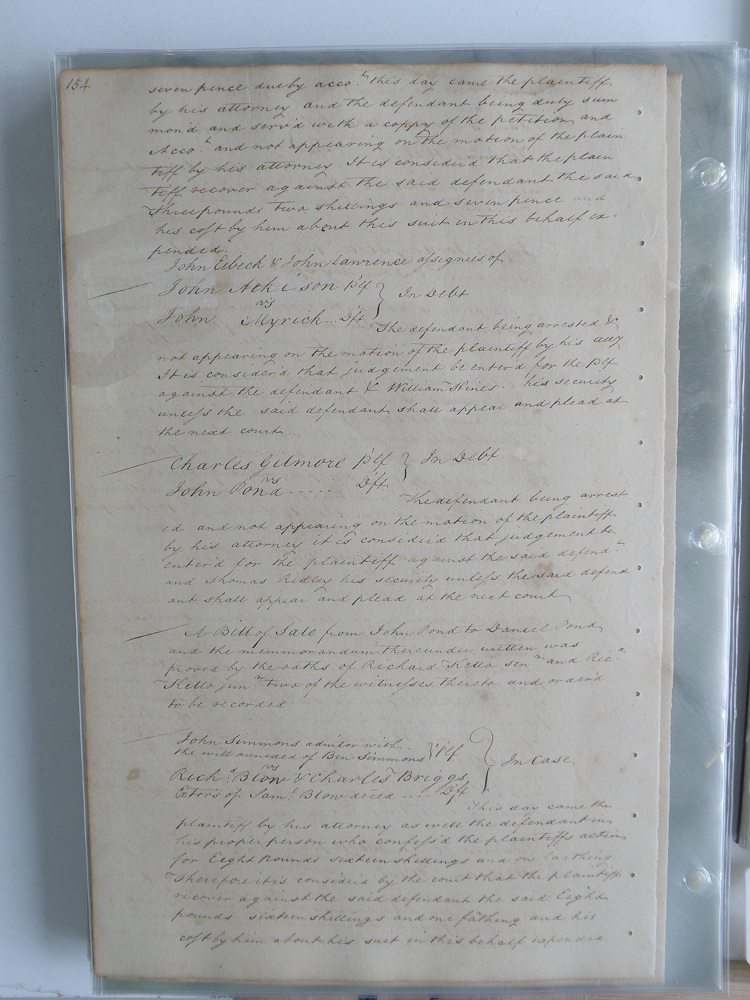 154
seven pence due by acco.t this day came the plaintiff
by his attorney and the defendant being duly sum
mond and serv'd with a coppy of the petition and
Acco.t and not appearing on the motion of the plain
tiff by his attorney It is consider'd that the plain
tiff recover against the said defendant the said
Three pounds two shillings and seven pence and
his cost by him about this suit in this behalf ex
pended.
John Elbeck & John Lawrence assignees of
John Atkison Plf } In Debt
vs
John Myrick... Dft
The defendant being arrested &
not appearing on the motion of the plaintiff by his atty
It is consider'd that judgement be enter'd for the Plf
against the defendant & William Hines .. his security
unless the said defendant shall appear and plead at
the next court
Charles Gilmore Plf } In Debt
vs
John Pond ..... Dft
The defendant being arrest
ed and not appearing on the motion of the plaintiff
by his attorney it is consider'd that judgement be
enter'd for the plaintiff against the said defend.t
and Thomas Ridley his security unless the said defend
ant shall appear and plead at the next court
A Bill of Sale from John Pond to Daniel Pond
and the memmorandum thereunder written was
proved by the oaths of Richard Kello sen.r and Ric.d
Kello jun.r two of the witnesses thereto and order'd
to be recorded
John Simmons admtor with..
the will annexed of Ben Simmons } Plf } In Case
vs
Rich.d Blow & Charles Briggs
Extors of Sam.l Blow deced .... Dft
This day came the
plaintiff by his attorney as well the defendant in
his proper person who confess'd the plaintiffs action
for Eight Pounds sixteen shillings and one farthing
Therefore it is consider'd by the court that the plaintiff
recover against the said defendant the said Eight
pounds sixteen shillings and one fathing and his
cost by him about his suit in this behalf expended